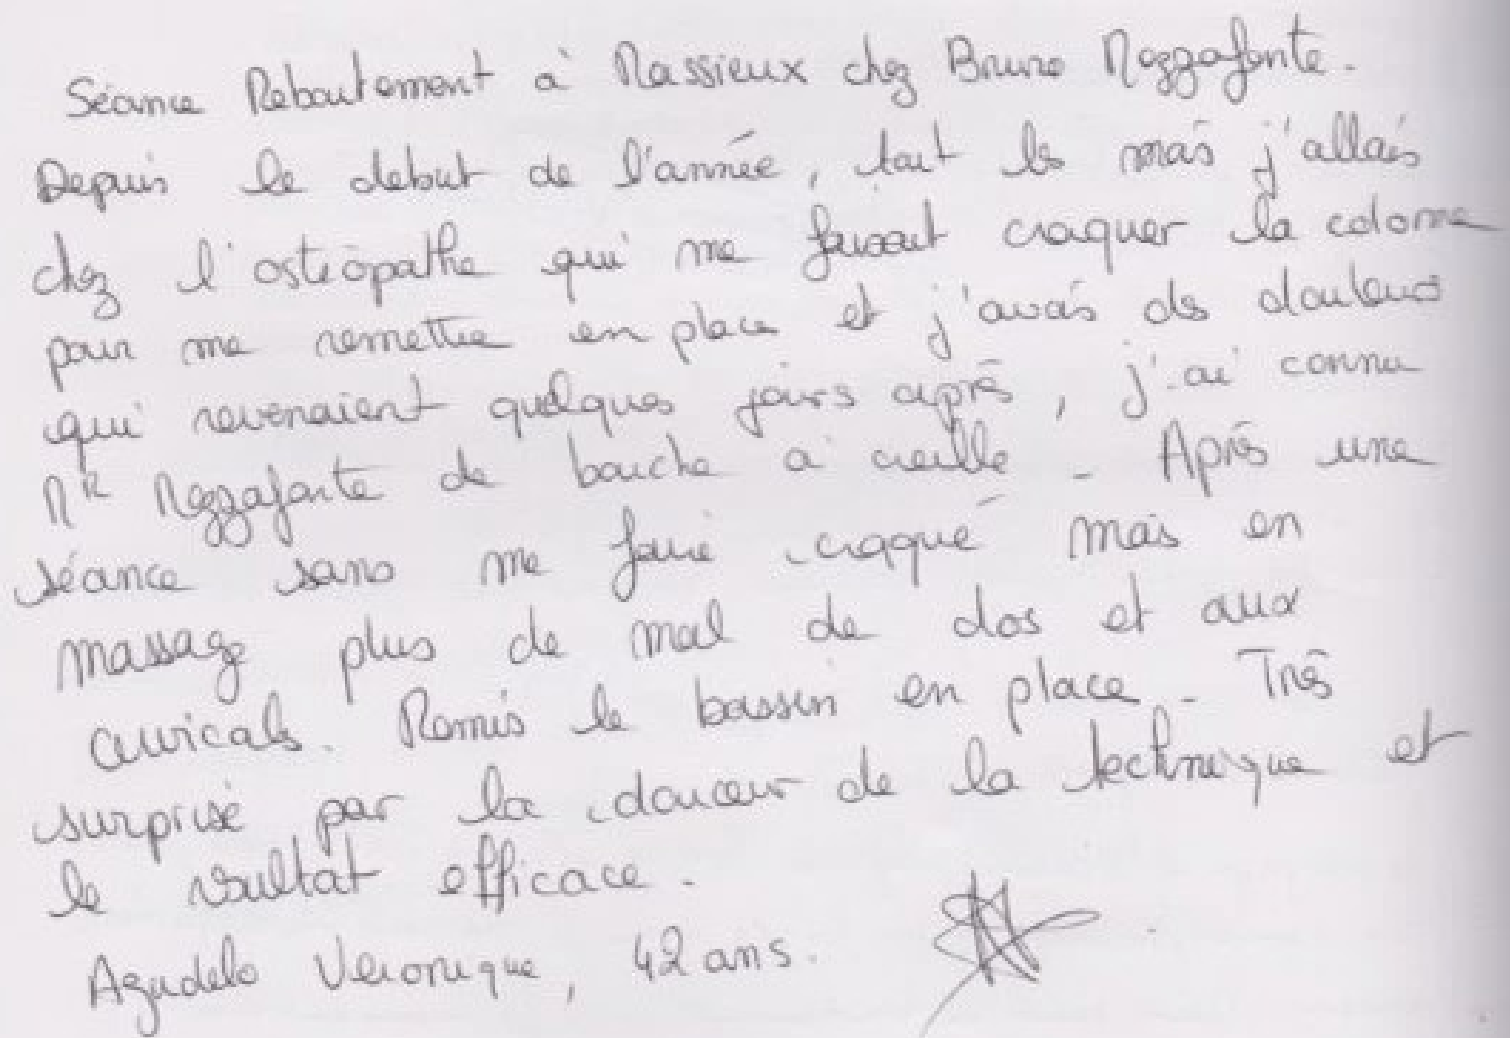 Séance Reboutement à Massieux chez Bruno Mezzafonte.
Depuis le debut de l'année, tout les mois j'allais
chez l'ostéopathe qui me faisait craquer la colonne
pour me remettre en place et j'avais des douleurs
qui revenaient quelques jours après, j'ai connu
MR Mezzafonte de bouche à oreille - Après une
séance sans me faire craqué mais en
massage plus de mal de dos et aux
cervicals. Remis le bassin en place - Très
surprise par la douceur de la technique et
le résultat efficace.
Agudelo Veronique, 42 ans.